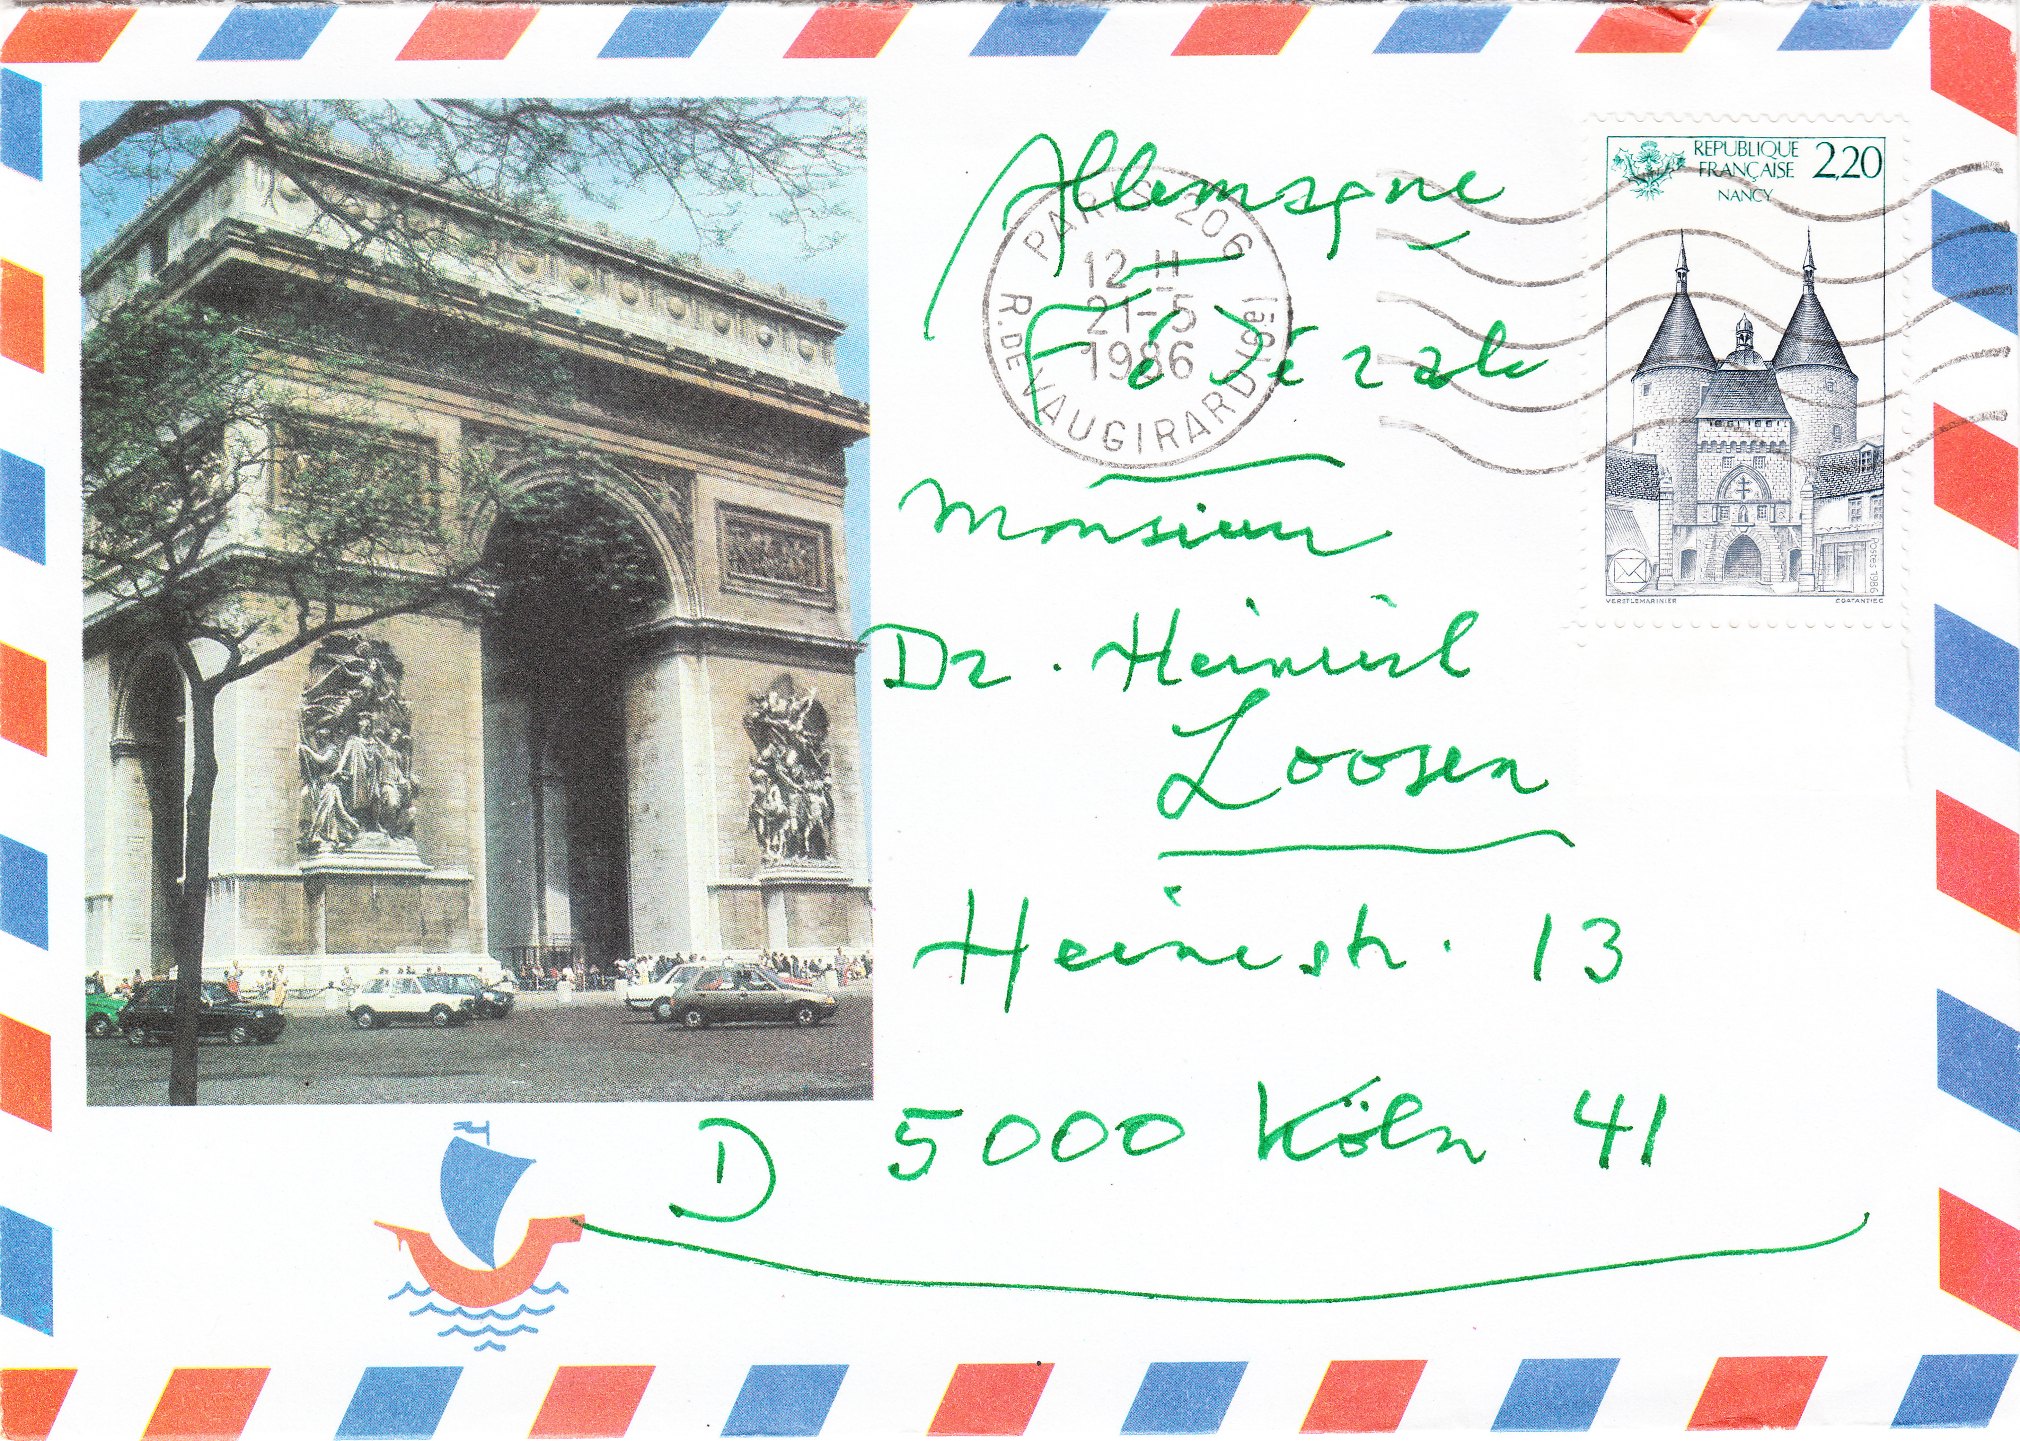 Allemagne
Fédérale
Monsieur
Dr. Heinrich
Loosen
Heinestr. 13
D 5000 Köln 41
PARIS 206
12 H
21-5
1986
R. DE VAUGIRARD (6E)
REPUBLIQUE
FRANÇAISE
2,20
NANCY
POSTES 1986
VERET-LEMARINIER
COSTANTINI